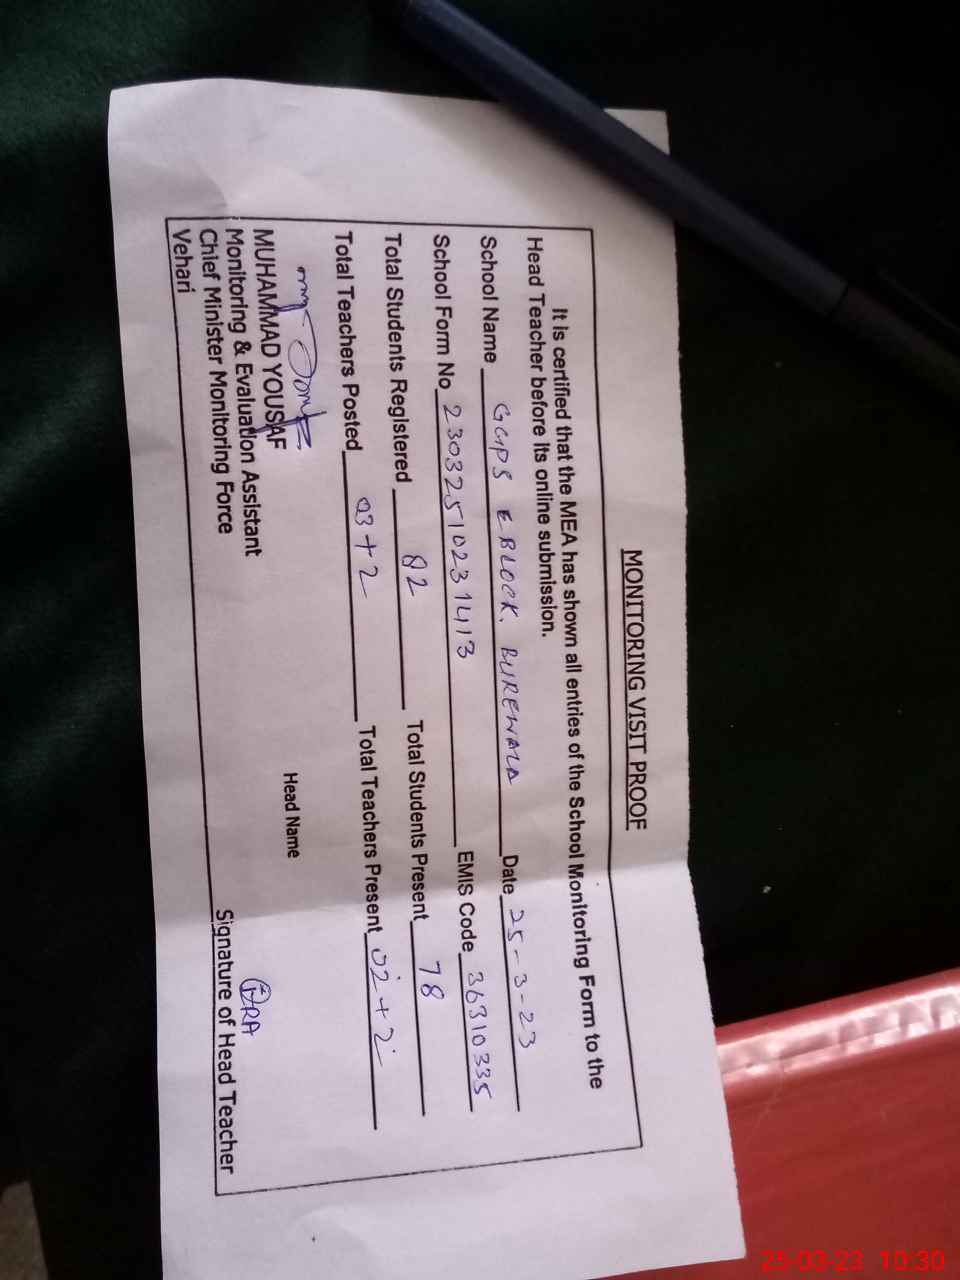 MONITORING VISIT PROOF
It is certified that the MEA has shown all entries of the School Monitoring Form to the
Head Teacher before its online submission.
School Name GGPS E BLOCK. BUREWALA Date 25-3-23
School Form No 2303251023 1413 EMIS Code 36310335
Total Students Registered 82 Total Students Present 78
Total Teachers Posted 03+2 Total Teachers Present 02+2
MUHAMMAD YOUSAF Head Name
Monitoring & Evaluation Assistant
Chief Minister Monitoring Force
Vehari Signature of Head Teacher
25-03-23 10:30